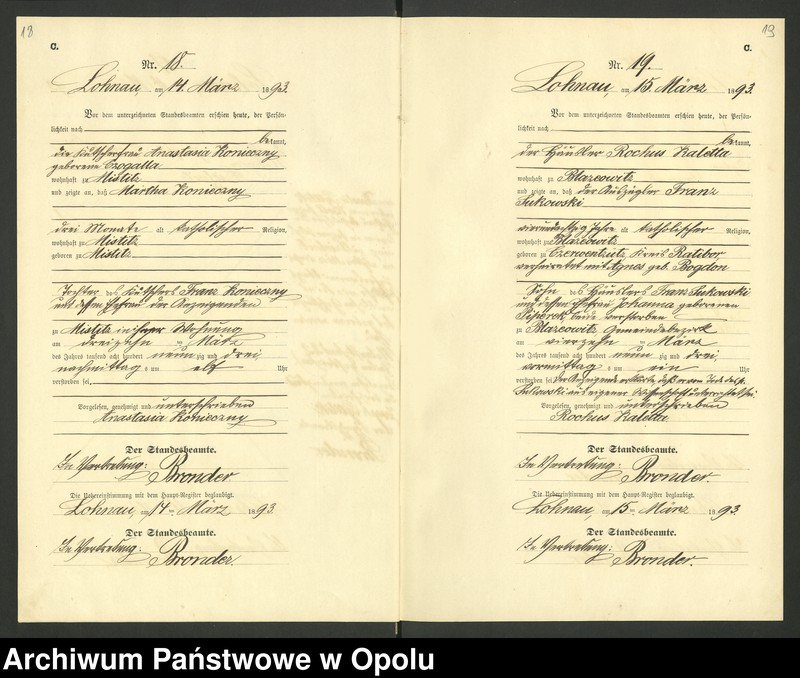 18
C.
Nr. 18.
Lohnau, am 14. März 1893.
Vor dem unterzeichneten Standesbeamten erschien heute, der Persön-
lichkeit nach
bekannt,
die Kutscherfrau Anastasia Konieczny
geborene Czogalla
wohnhaft zu Mistitz
und zeigte an, daß Martha Konieczny
drei Monate alt katholischer Religion,
wohnhaft zu Mistitz
geboren zu Mistitz
Tochter des Kutschers Franz Konieczny
und dessen Ehefrau der Anzeigenden
zu Mistitz in ihrer Wohnung
am dreizehn ten März
des Jahres tausend acht hundert neunzig und drei
nachmittags um elf Uhr
verstorben sei,
Vorgelesen, genehmigt und unterschrieben
Anastasia Konieczny
Der Standesbeamte.
In Vertretung: Bronder
Die Uebereinstimmung mit dem Haupt-Register beglaubigt.
Lohnau, am 14 ten März 1893.
Der Standesbeamte.
In Vertretung: Bronder.
19
C.
Nr. 19.
Lohnau, am 15. März 1893.
Vor dem unterzeichneten Standesbeamten erschien heute, der Persön-
lichkeit nach
bekannt,
der Häusler Rochus Kaletta
wohnhaft zu Blazeowitz
und zeigte an, daß der Auszügler Franz
Sukowski
Jahre alt katholischer Religion,
wohnhaft zu Blazeowitz
geboren zu Czerwentzütz Kreis Ratibor
verheiratet mit Agnes geb. Bogdon
Sohn des Häuslers Franz Sukowski
und dessen Ehefrau Johanna geborenen
beide verstorben
zu Blazeowitz Gemeindebezirk
am vierzehn ten März
des Jahres tausend acht hundert neunzig und drei
vormittags um ein Uhr
verstorben sei. Der Anzeigende erklärte, daß er von Tode des p.
Sukowski aus eigener Wissenschaft unterrichtet sei.
Vorgelesen, genehmigt und unterschrieben
Rochus Kaletta
Der Standesbeamte.
In Vertretung: Bronder.
Die Uebereinstimmung mit dem Haupt-Register beglaubigt.
Lohnau, am 15 ten März 1893.
Der Standesbeamte.
In Vertretung: Bronder.
Archiwum Państwowe w Opolu